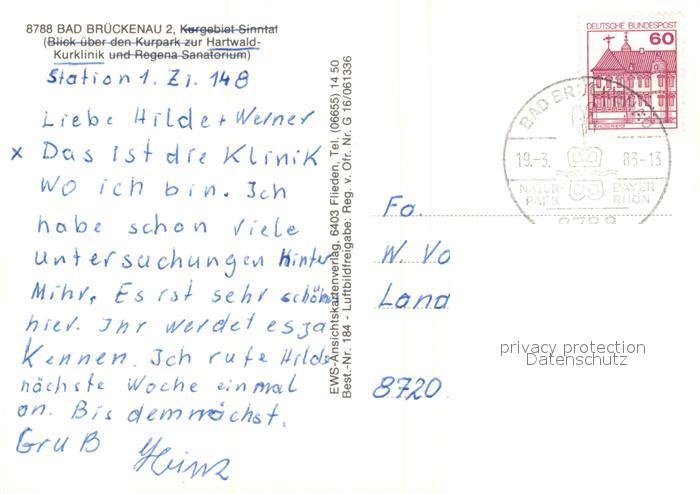 8788 BAD BRÜCKENAU 2, Kurgebiet Sinntal
(Blick über den Kurpark zur Hartwald-
Kurklinik und Regena Sanatorium)
Station 1. Zi. 148
Liebe Hilde + Werner
x Das ist die Klinik
wo ich bin. Ich
habe schon viele
untersuchungen hinter
Mihr. Es ist sehr schön
hier. Ihr werdet es ja
Kennen. Ich rufe Hilde
nächste Woche einmal
an. Bis demnächst.
Gruß Heinz
EWS-Ansichtskartenverlag, 6403 Flieden, Tel. (06655) 14 50
Best.-Nr. 184 - Luftbildfreigabe: Reg. v. Ofr. Nr. G 16/061336
DEUTSCHE BUNDESPOST
60
BAD BRÜCKENAU
19.-3. 83-13
NATUR- BAYER
PARK RHÖN
8788
Fa.
W. Vo
Land
8720
privacy protection
Datenschutz